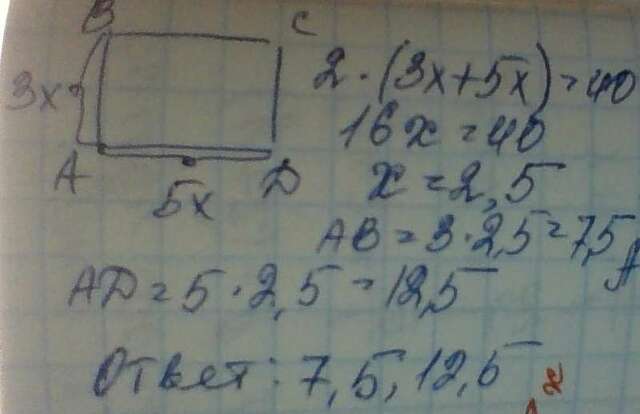 B C
3x
2·(3x+5x)=40
16x=40
A D
5x
x=2,5
AB=3·2,5=7,5
AD=5·2,5=12,5
Ответ: 7,5, 12,5
x